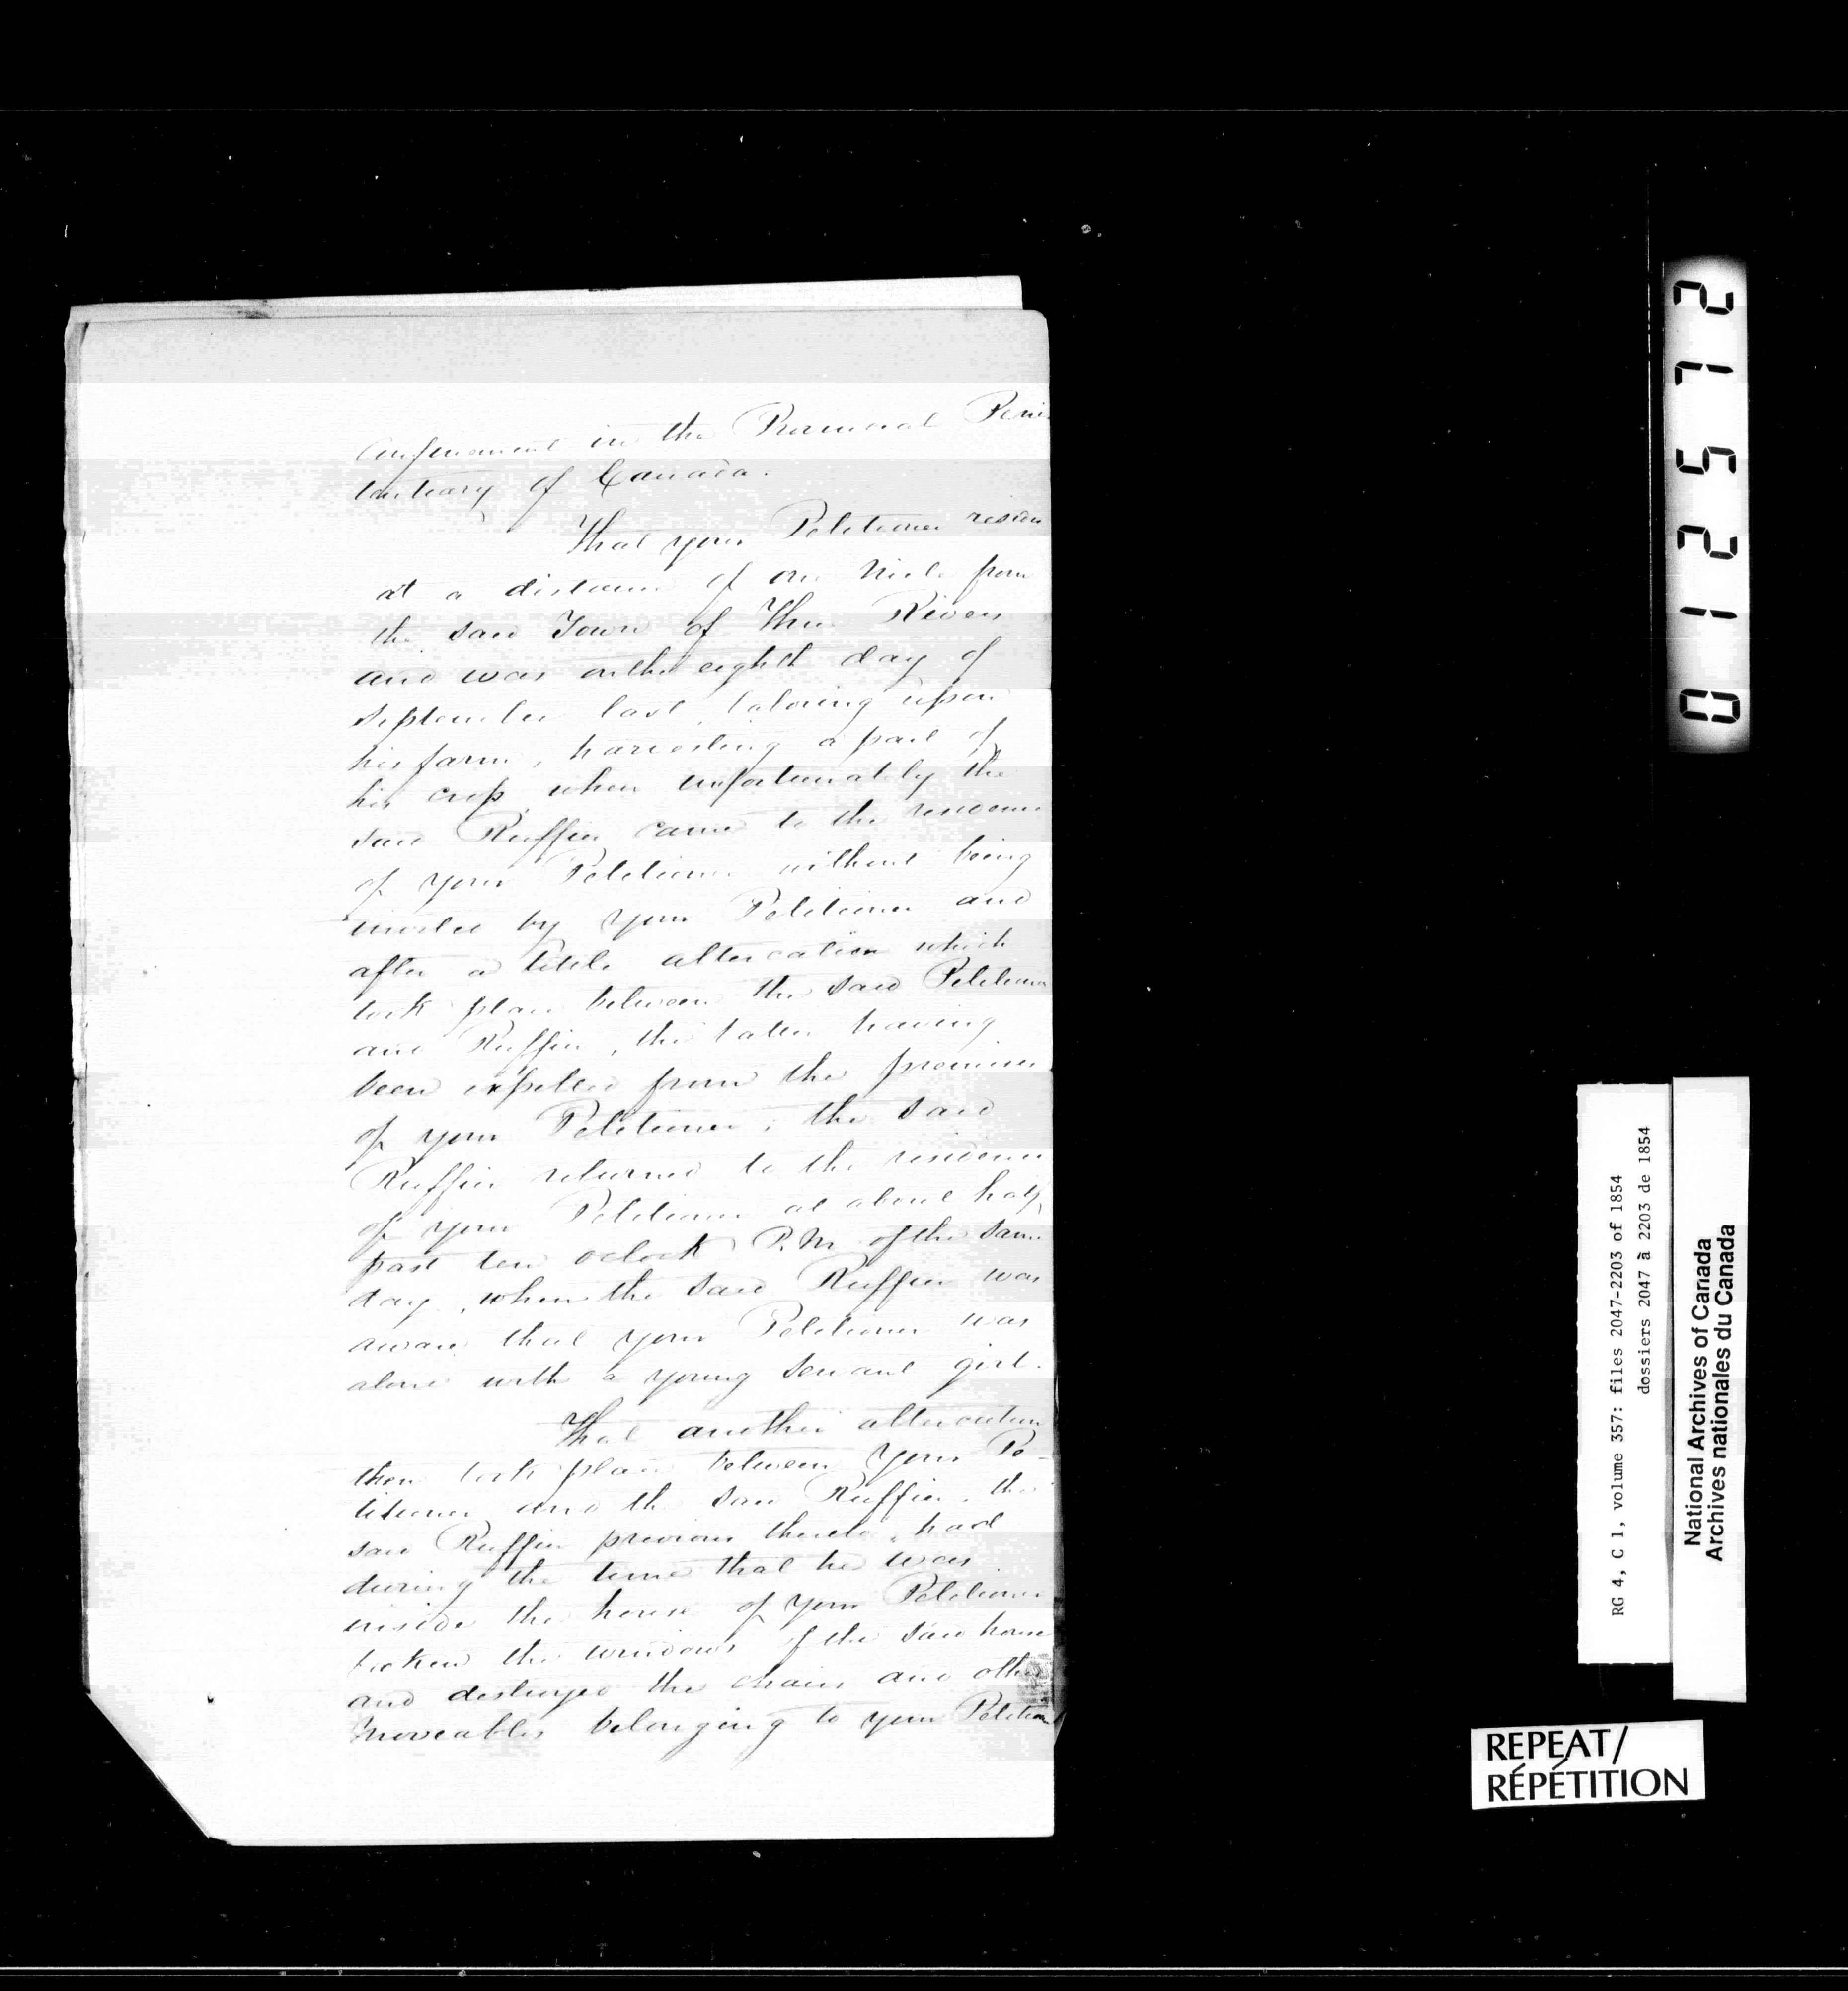 Confinement in the Provincial Peni-
tentiary of Canada.
That your Petitioner resides
at a distance of one Mile from
the said Town of Three Rivers
and was on the eighth day of
September last, laboring upon
his farm, harvesting a part of
his crop, when unfortunately the
said Ruffier came to the residence
of your Petitioner without being
invited by your Petitioner and
after a little altercation which
took place between the said Petitioner
and Ruffier, the latter having
been expelled from the premises
of your Petitioner; the said
Ruffier returned to the residence
of your Petitioner at about half
past ten oclock P.M. of the same
day, when the said Ruffier was
aware that your Petitioner was
alone with a young servant girl.
That another altercation
then took place between your Pe-
titioner and the said Ruffier, the
said Ruffier previous thereto, had
during the time that he was
inside the house of your Petitioner
broken the windows of the said house
and destroyed the chairs and other
Moveables belonging to your Petitioner
012572
RG 4, C 1, volume 357: files 2047-2203 of 1854
dossiers 2047 à 2203 de 1854
National Archives of Canada
Archives nationales du Canada
REPEAT/
RÉPÉTITION